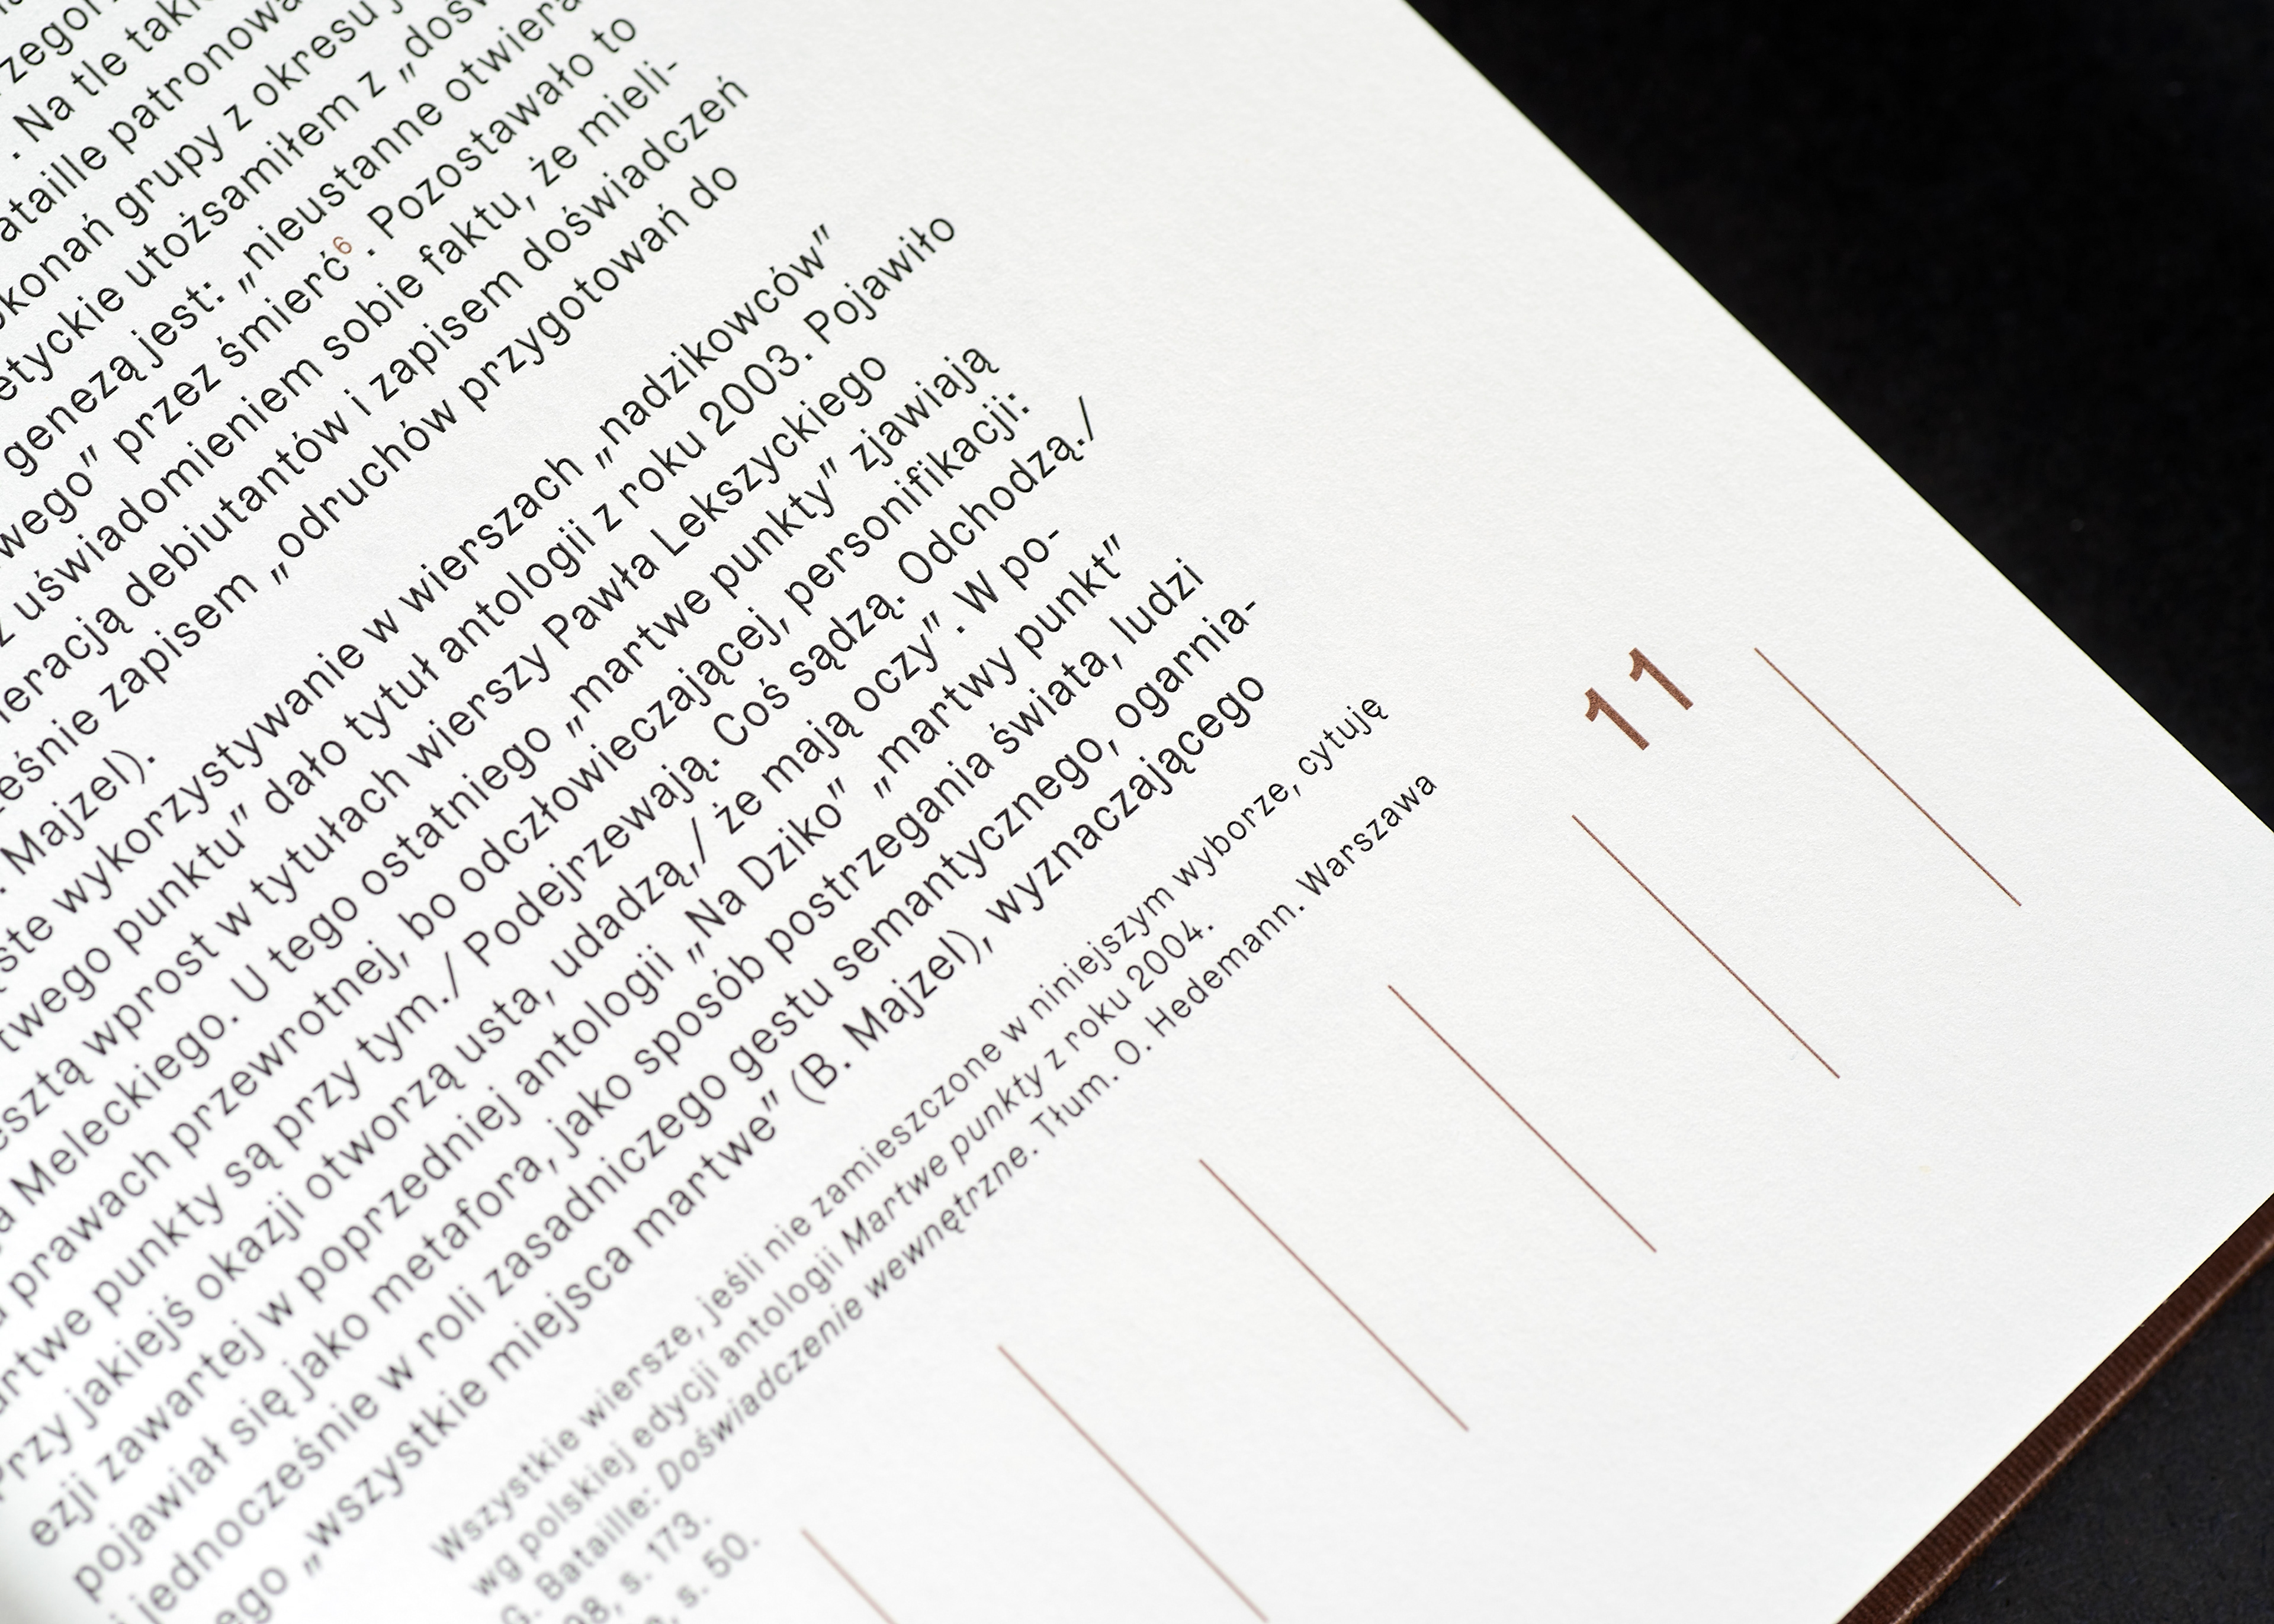 . Na tle
patronowa
grupy z okresu
utożsamiłem z „
genezą jest: „nieustanne otwiera
przez śmierć⁶. Pozostawało to
uświadomieniem sobie faktu, że mieli-
debiutantów i zapisem doświadczeń
zapisem „odruchów przygotowań do
Majzel).
wykorzystywanie w wierszach „nadzikowców”
punktu” dało tytuł antologii z roku 2003. Pojawiło
wprost w tytułach wierszy Pawła Lekszyckiego
Meleckiego. U tego ostatniego „martwe punkty” zjawiają
prawach przewrotnej, bo odczłowieczającej, personifikacji:
punkty są przy tym./ Podejrzewają. Coś sądzą. Odchodzą./
Przy jakiejś okazji otworzą usta, udadzą,/ że mają oczy”. W po-
ezji zawartej w poprzedniej antologii „Na Dziko” „martwy punkt”
pojawiał się jako metafora, jako sposób postrzegania świata, ludzi
i jednocześnie w roli zasadniczego gestu semantycznego, ogarnia-
„wszystkie miejsca martwe” (B. Majzel), wyznaczającego
Wszystkie wiersze, jeśli nie zamieszczone w niniejszym wyborze, cytuję
wg polskiej edycji antologii Martwe punkty z roku 2004.
G. Bataille: Doświadczenie wewnętrzne. Tłum. O. Hedemann. Warszawa
s. 173.
s. 50.
11